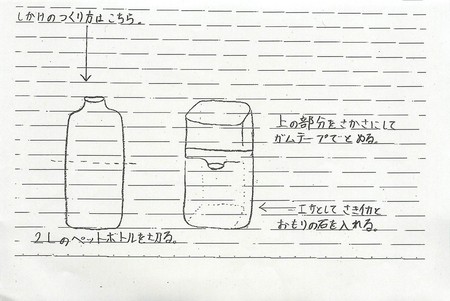 しかけのつくり方はこちら。
上の部分をさかさにして
ガムテープでとめる。
エサとしてさきイカと
おもりの石を入れる。
2Lのペットボトルを切る。